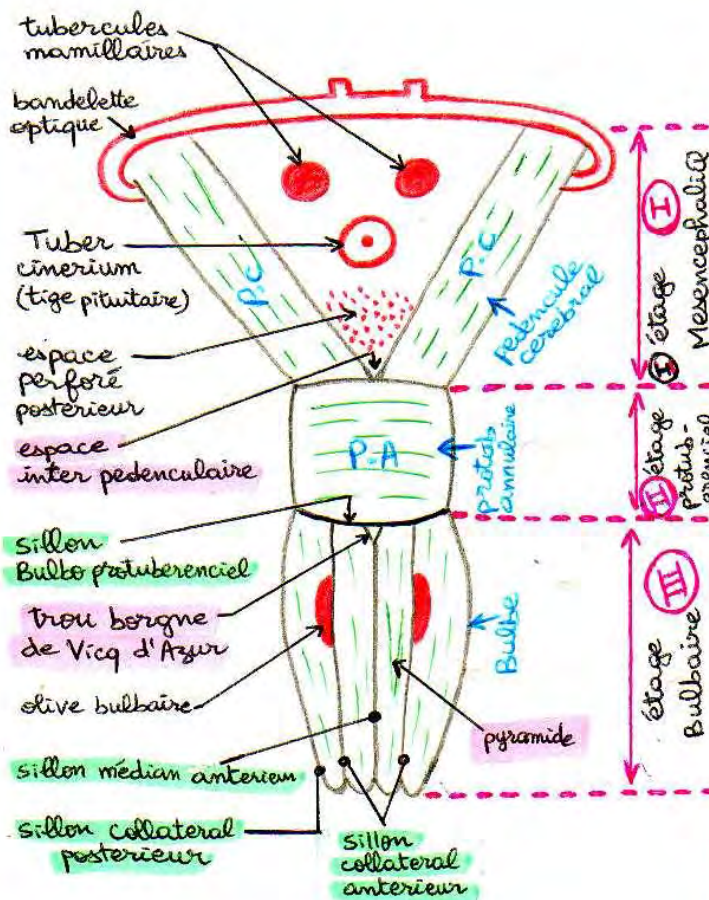 tubercules
mamillaires
bandelette
optique
Tuber
cinerium
(tige pituitaire)
espace
perforé
posterieur
espace
inter pedenculaire
sillon
Bulbo protuberenciel
trou borgne
de Vicq d'Azur
olive bulbaire
sillon médian anterieur
sillon collateral
posterieur
sillon
collateral
anterieur
pyramide
P.C
P.C
Pedencule
cerebral
P.A
protob
annulaire
Bulbe
I
I étage
Mesencephaliq
II étage
protub-
erenciel
III
étage
Bulbaire